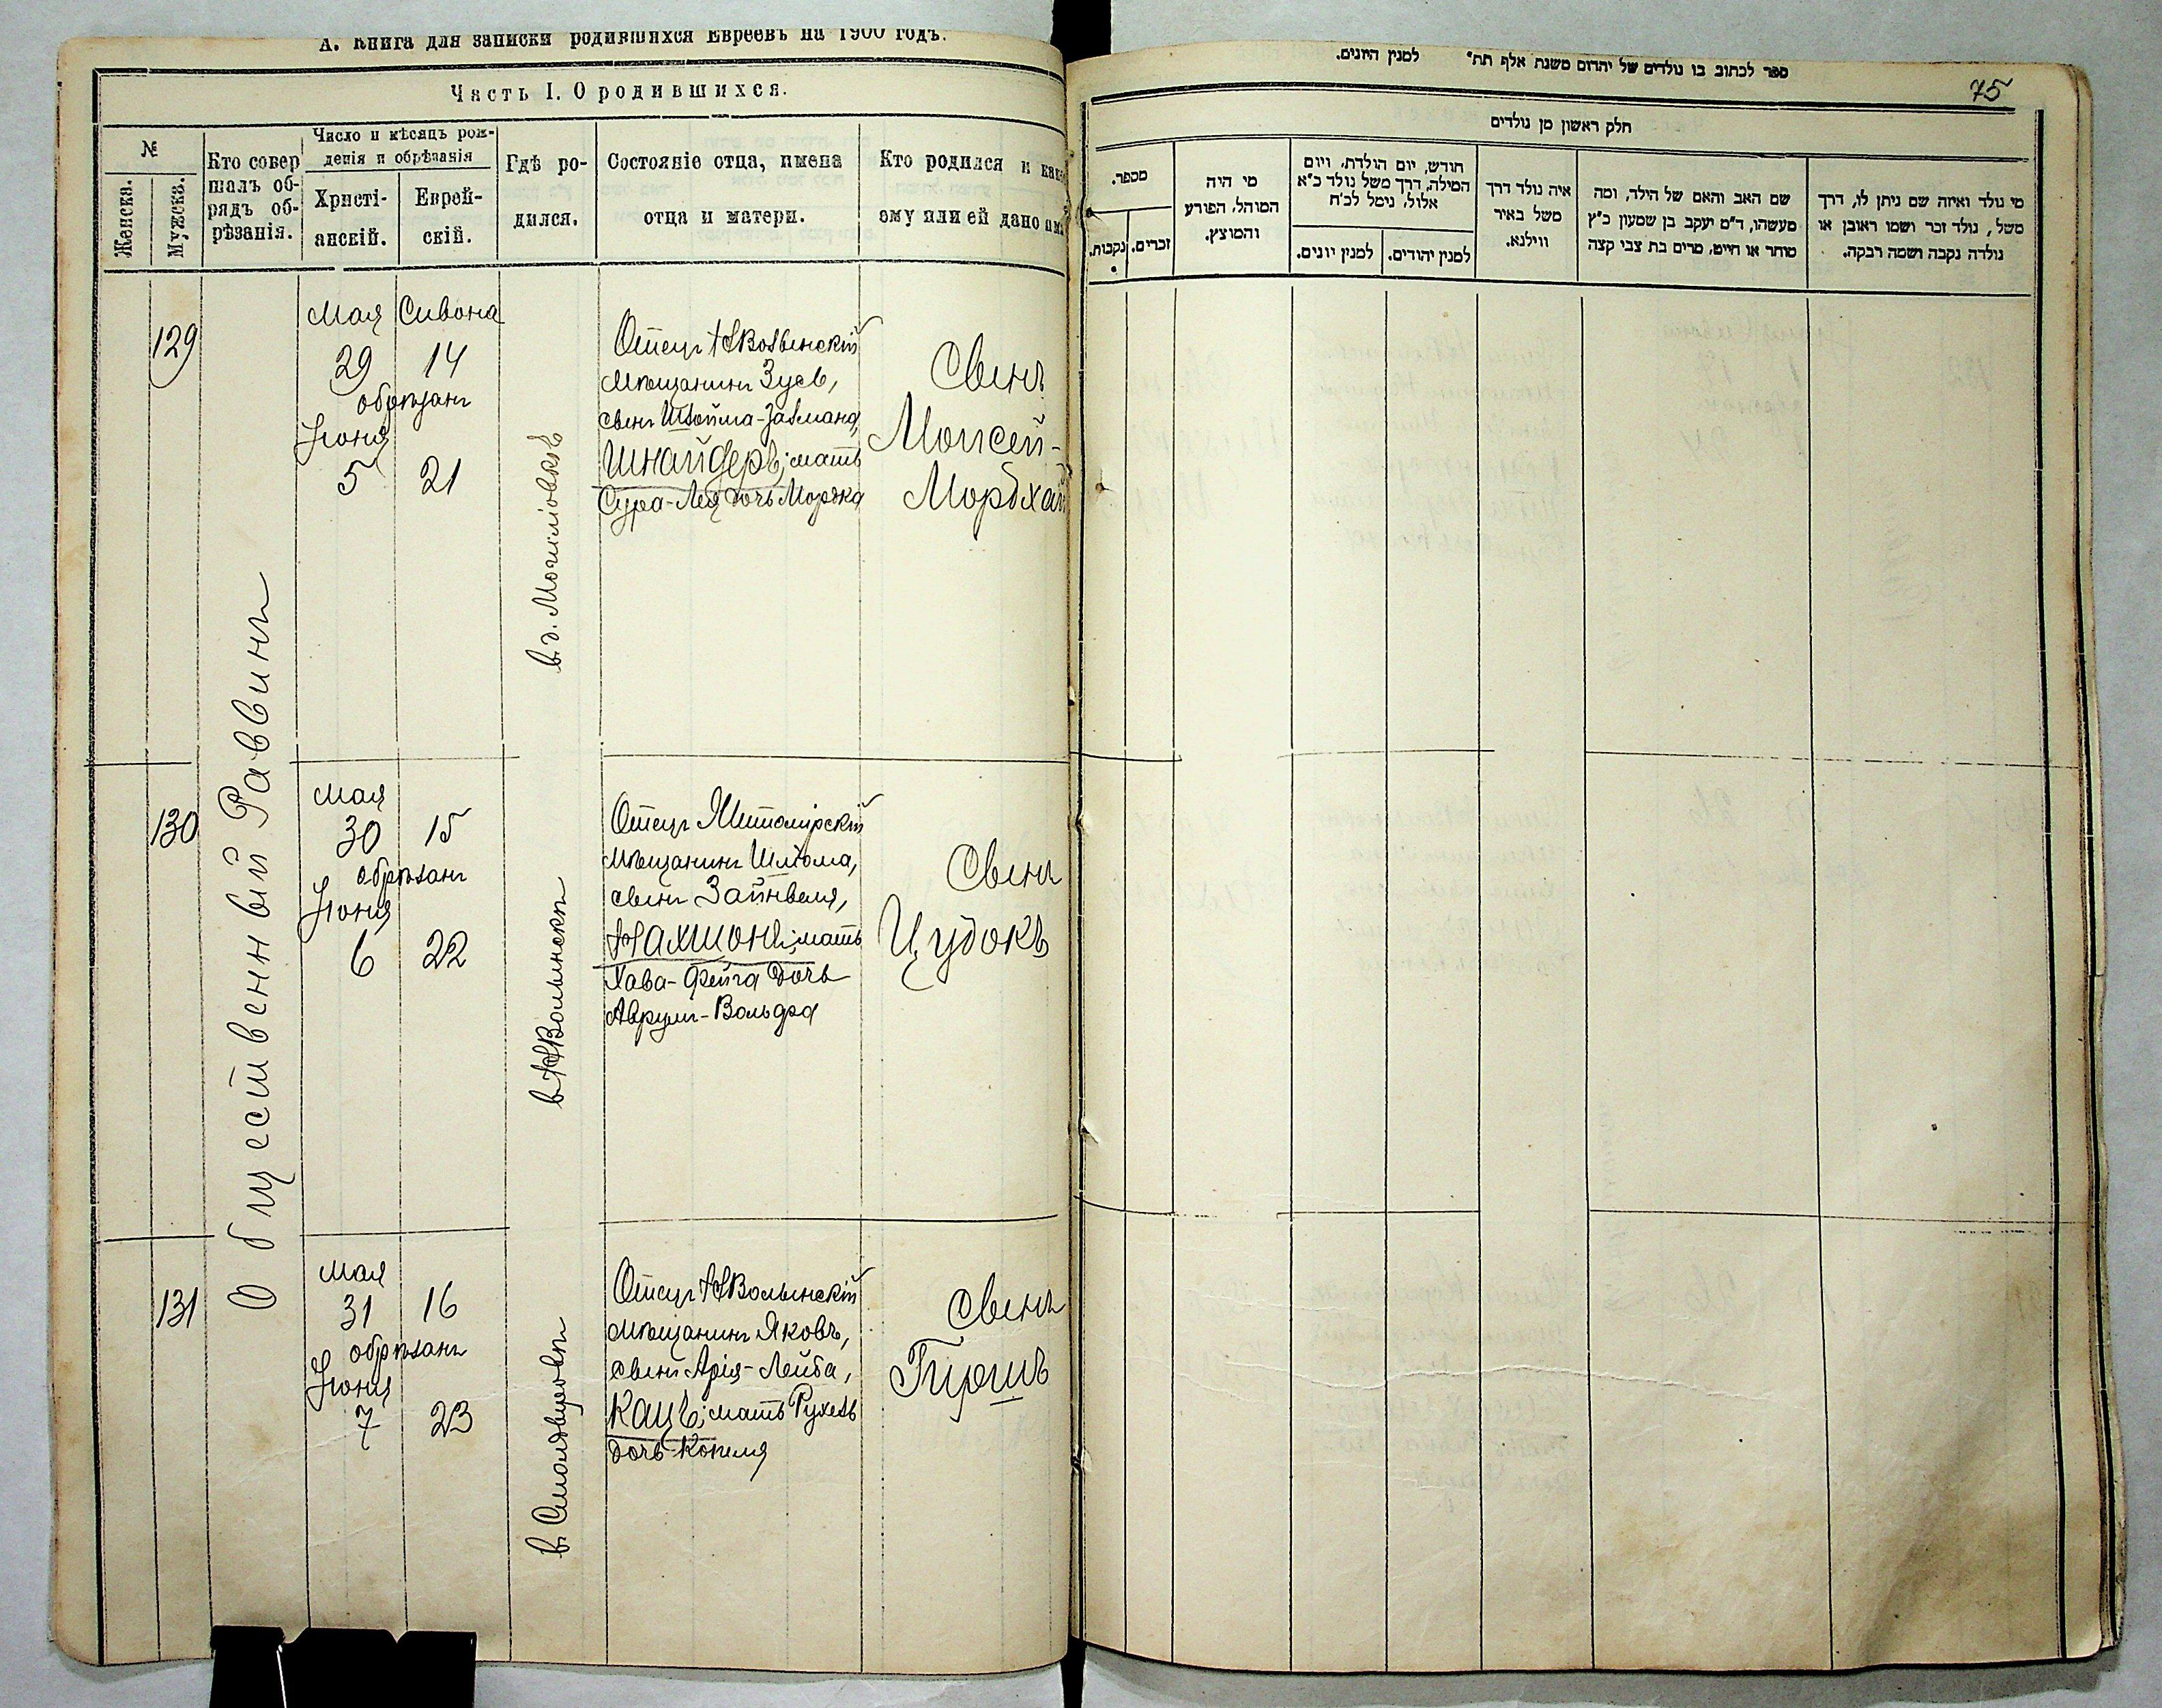 А. Книга для записки родившихся Евреевъ на 1900 годъ.
Часть I. О родившихся.
№
Женска.
Мужска.
Кто совер
шалъ об-
рядъ об-
рѣзанія.
Число и мѣсяцъ рож-
денія и обрѣзанія
Христі-
анскій.
Еврей-
скій.
Гдѣ ро-
дился.
Состояніе отца, имена
отца и матери.
Кто родился и как
ему или ей дано им
Общественный Раввинъ
129
Мая Сивона
29 14
обрѣзанъ
Іюня
5 21
в. д. Могилювкѣ
Отецъ НВолынскій
мѣщанинъ Зусь,
сынъ Шлойма-Залмана,
Шнайдеръ; мать
Сура-Лея дочь Мордка
Сынъ
Моисей-
Мордхай
130
Мая
30 15
обрѣзанъ
Іюня
6 22
в НВолынскѣ
Отецъ Житомірскій
мѣщанинъ Шлома,
сынъ Зайнвеля,
Нахшонъ; мать
Хава-Фейга дочь
Аврумъ-Вольфа
Сынъ
Цудокъ
131
Мая
31 16
обрѣзанъ
Іюня
7 23
Отецъ НВолынскій
мѣщанинъ Яковъ,
сынъ Арія-Лейба,
Кацъ; мать Рухель
дочь Копеля
Сынъ
Гиршъ
ספר לכתוב בו נולדים של יהדום משנת אלף תת״ למנין היונים.
75
חלק ראשון מן נולדים
מספר.
נקבות.
זכרים.
מי היה
המוהל, הפורע
והמוצץ.
חודש, יום הולדת, ויום
המילה, דרך משל נולד כ״א
אלול, נימל לכ״ח
למנין יונים.
למנין יהודים.
איה נולד דרך
משל באיר
ווילנא.
שם האב והאם של הילד, ומה
מעשהו, ד״מ יעקב בן שמעון כ״ץ
סוחר או חייט, מרים בת צבי קצה
מי נולד ואיזה שם ניתן לו, דרך
משל, נולד זכר ושמו ראובן או
נולדה נקבה ושמה רבקה.